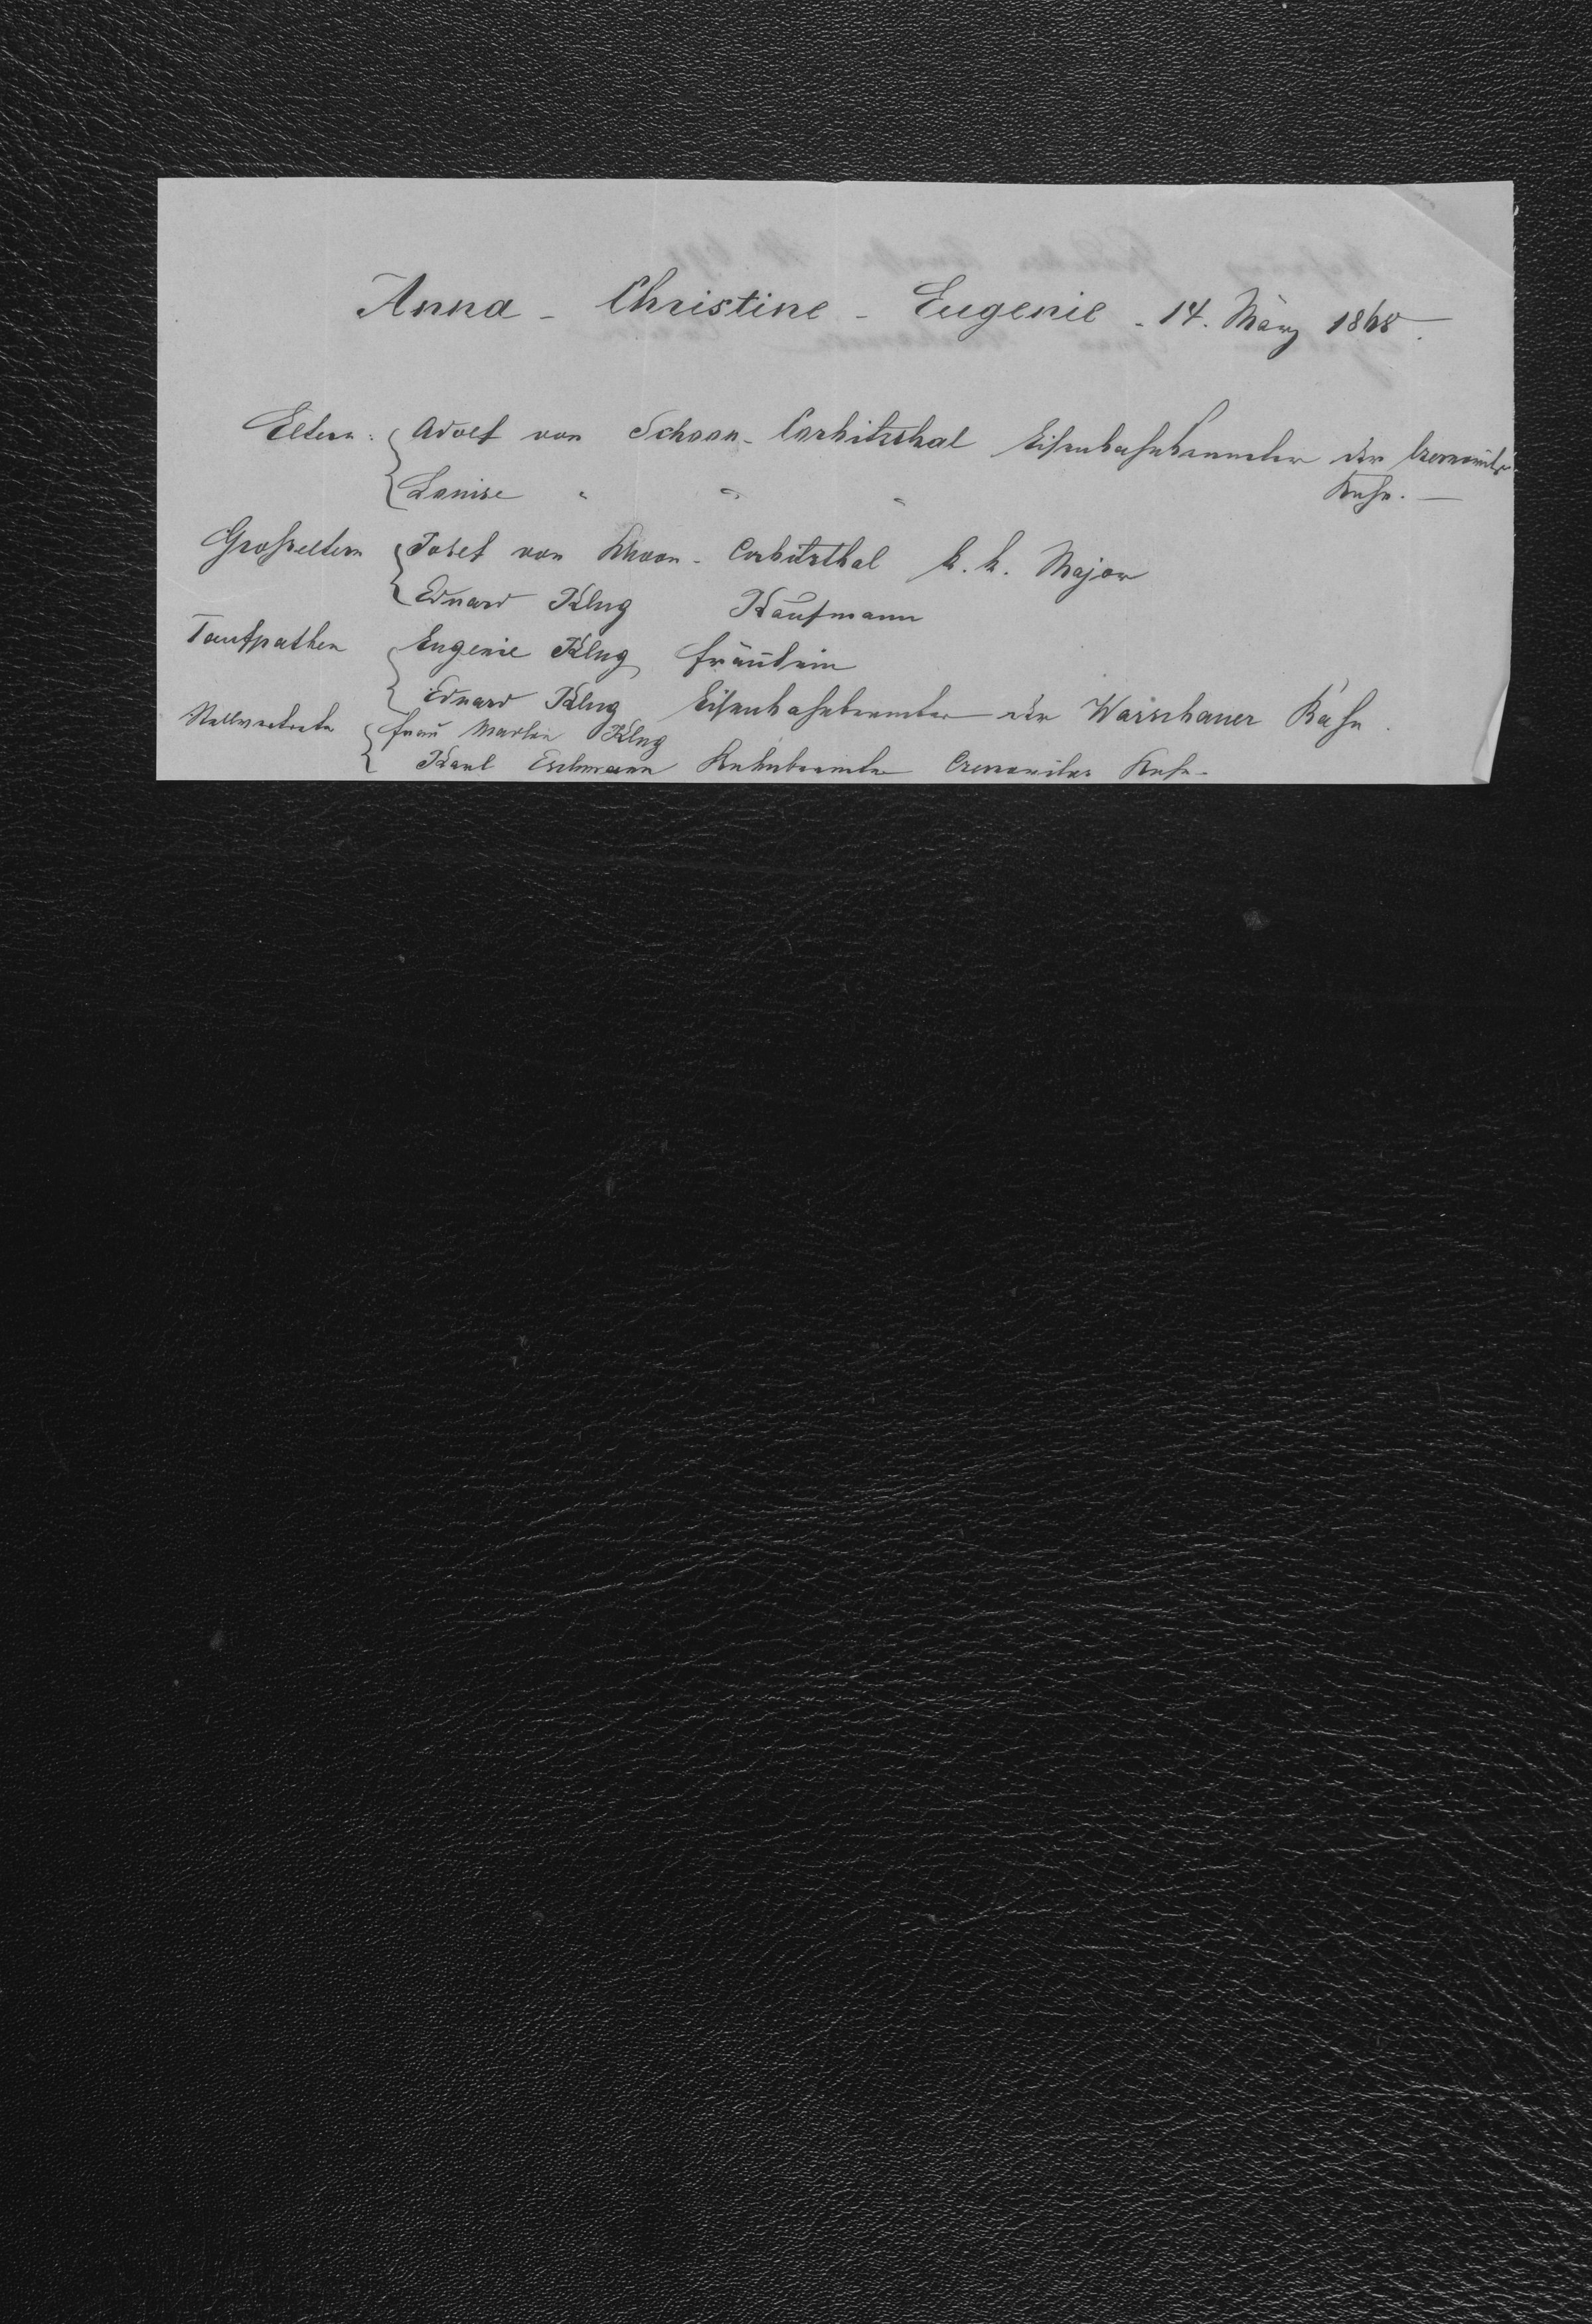 Anna - Christine - Eugenie - 14. März 1868.
Eltern: Adolf von Schoon - Corbitzthal Eisenbahnbeamter der
Louise " " " Bahn. —
Großeltern Josef von Schoon - Corbitzthal k. k. Major
Eduard Klug Kaufmann
Taufpathen Eugenie Klug Fräulein
Eduard Klug Eisenbahnbeamter der Warschauer Bahn.
Stellvertreter Frau Klug
Karl Eschmann Bahnbeamter Bahn.